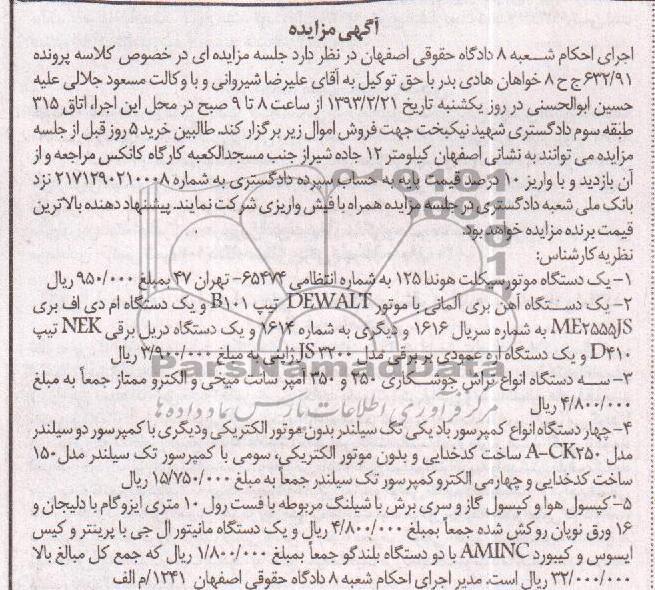 آگهی مزایده
اجرای احکام شعبه ۸ دادگاه حقوقی اصفهان در نظر دارد جلسه مزایده ای در خصوص کلاسه پرونده
۶۳۲/۹۱ج ح ۸ خواهان هادی بدر با حق توکیل به آقای علیرضا شیروانی و با وکالت مسعود جلالی علیه
حسین ابوالحسنی در روز یکشنبه تاریخ ۱۳۹۳/۲/۲۱ از ساعت ۸ تا ۹ صبح در محل این اجرا، اتاق ۳۱۵
طبقه سوم دادگستری شهید نیکبخت جهت فروش اموال زیر برگزار کند. طالبین خرید ۵ روز قبل از جلسه
مزایده می توانند به نشانی اصفهان کیلومتر ۱۲ جاده شیراز جنب مسجدالکعبه کارگاه کانکس مراجعه و از
آن بازدید و با واریز ۱۰ درصد قیمت پایه به حساب سپرده دادگستری به شماره ۲۱۷۱۲۹۰۲۱۰۰۰۸ نزد
بانک ملی شعبه دادگستری در جلسه مزایده همراه با فیش واریزی شرکت نمایند. پیشنهاد دهنده بالاترین
قیمت برنده مزایده خواهد بود.
نظریه کارشناس:
۱- یک دستگاه موتورسیکلت هوندا ۱۲۵ به شماره انتظامی ۶۵۴۷۴- تهران ۴۷ بمبلغ ۹۵۰/۰۰۰ ریال
۲- یک دستگاه آهن بری آلمانی با موتور DEWALT تیپ B۱۰۱ و یک دستگاه ام دی اف بری
ME۲۵۵۵JS به شماره سریال ۱۶۱۶ و دیگری به شماره ۱۶۱۴ و یک دستگاه دریل برقی NEK تیپ
D۴۱۰ و یک دستگاه اره عمودی بر برقی مدل JS۳۲۰۰ ژاپنی به مبلغ ۳/۹۰۰/۰۰۰ ریال
۳- سه دستگاه انواع تراش جوشکاری ۲۵۰ و ۳۵۰ آمپر سانت میخی و الکترو ممتاز جمعاً به مبلغ
۴/۸۰۰/۰۰۰ ریال
۴- چهار دستگاه انواع کمپرسور باد یکی تک سیلندر بدون موتور الکتریکی ودیگری با کمپرسور دو سیلندر
مدل A-CK۲۵۰ ساخت کدخدایی و بدون موتور الکتریکی، سومی با کمپرسور تک سیلندر مدل ۱۵۰
ساخت کدخدایی و چهارمی الکترو کمپرسور تک سیلندر جمعاً به مبلغ ۱۵/۷۵۰/۰۰۰ ریال
۵- کپسول هوا و کپسول گاز و سری برش با شیلنگ مربوطه با فست رول ۱۰ متری ایزوگام با دلیجان و
۱۶ ورق نوپان روکش شده جمعاً بمبلغ ۴/۸۰۰/۰۰۰ ریال و یک دستگاه مانیتور ال جی با پرینتر و کیس
ایسوس و کیبورد AMINC با دو دستگاه بلندگو جمعاً بمبلغ ۱/۸۰۰/۰۰۰ ریال که جمع کل مبالغ بالا
۳۲/۰۰۰/۰۰۰ ریال است. مدیر اجرای احکام شعبه ۸ دادگاه حقوقی اصفهان ۱۲۴۱/م الف
ParsNamadData
مرکز فرآوری اطلاعات پارس نماد داده ها